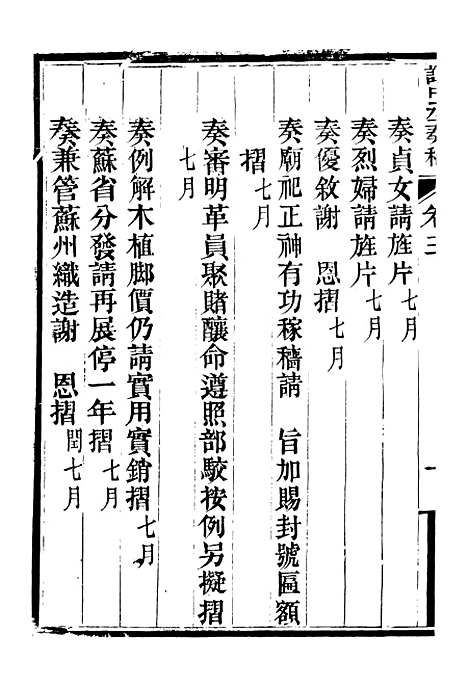 奏稿 卷三
奏貞女請旌片 七月
奏烈婦請旌片 七月
奏優敘謝 恩摺 七月
奏廟祀正神有功稼穡請 旨加賜封號匾額
摺 七月
奏審明革員聚賭釀命遵照部駮按例另擬摺
七月
奏例解木植脚價仍請實用實銷摺 七月
奏蘇省分發請再展停一年摺 七月
奏兼管蘇州織造謝 恩摺 閏七月